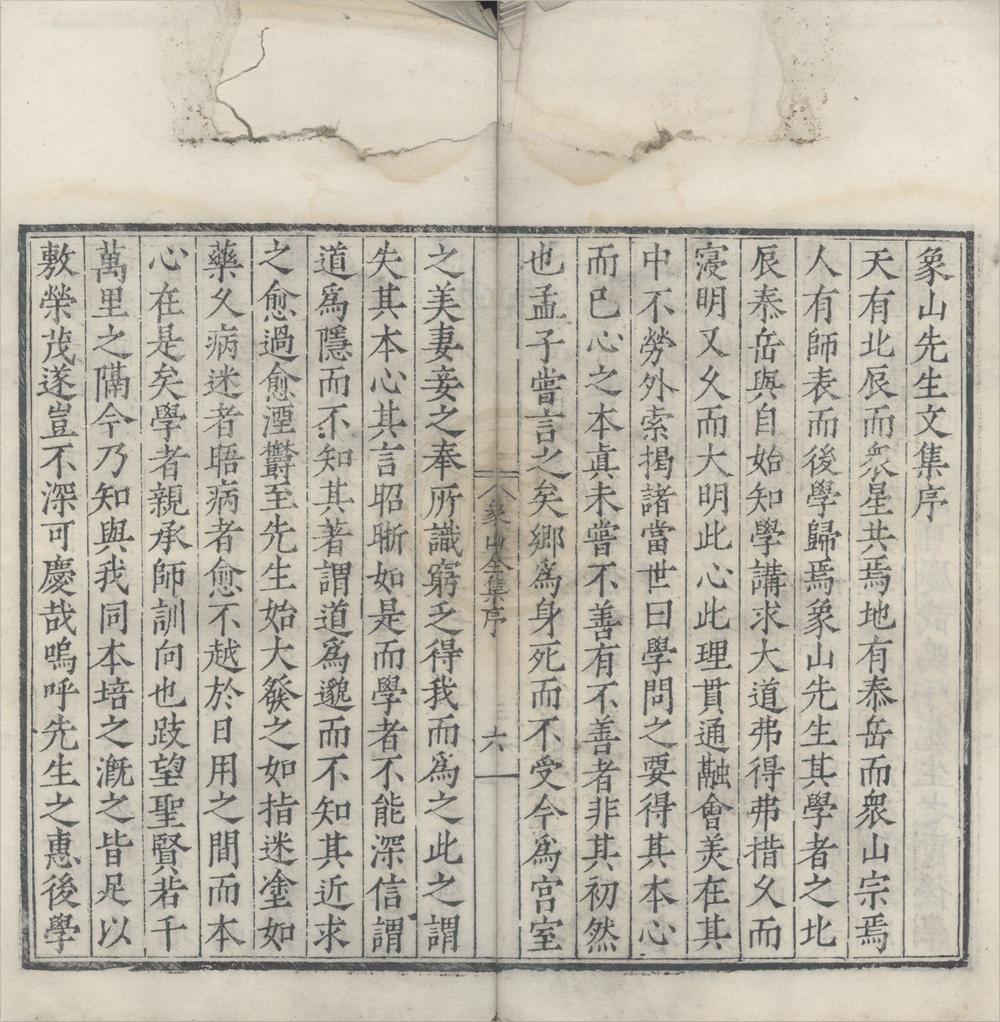 象山先生文集序
天有北辰而衆星共焉地有泰岳而衆山宗焉
人有師表而後學歸焉象山先生其學者之北
辰泰岳與自始知學講求大道弗得弗措久而
寖明又久而大明此心此理貫通融會美在其
中不勞外索揭諸當世曰學問之要得其本心
而已心之本真未嘗不善有不善者非其初然
也孟子嘗言之矣鄉為身死而不受今為宮室
象山全集序
六
之美妻妾之奉所識窮乏得我而為之此之謂
失其本心其言昭晣如是而學者不能深信謂
道為隱而不知其著謂道為邈而不知其近求
之愈過愈湮鬱至先生始大發之如指迷塗如
藥久病迷者晤病者愈不越於日用之間而本
心在是矣學者親承師訓向也跂望聖賢若千
萬里之隔今乃知與我同本培之溉之皆足以
敷榮茂遂豈不深可慶哉嗚呼先生之惠後學